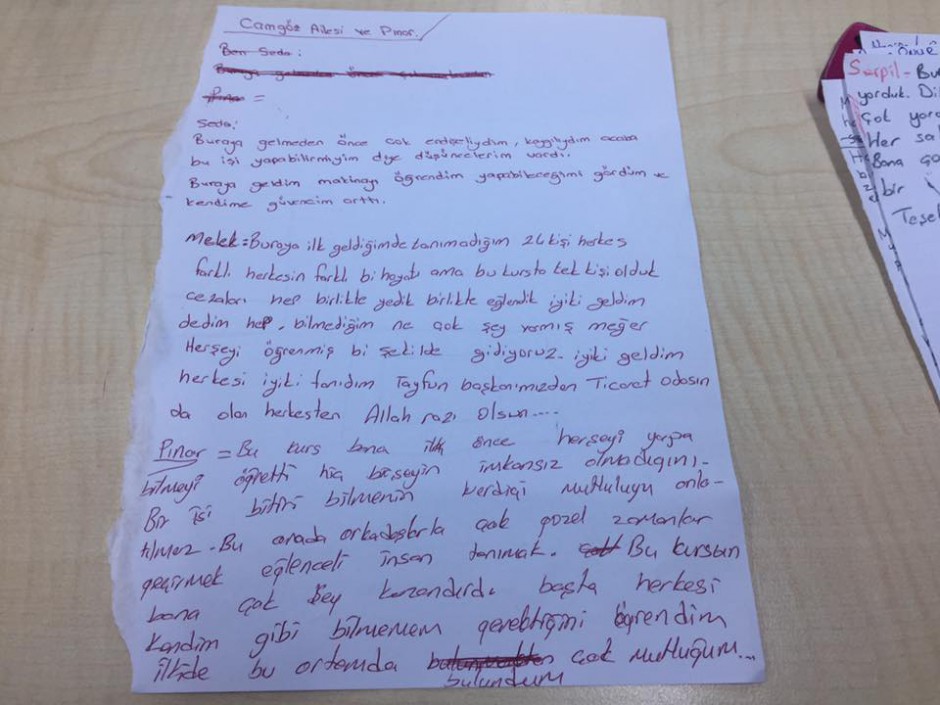 Camgöz Ailesi ve Pınar.
Ben Seda:
Pınar =
Seda:
Buraya gelmeden önce çok endişeliydim, kaygılıydım acaba
bu işi yapabilirmiyim diye düşüncelerim vardı.
Buraya geldim makinayı öğrendim yapabileceğimi gördüm ve
kendime güvencim arttı.
Melek = Buraya ilk geldiğimde tanımadığım 24 kişi herkes
farklı herkesin farklı bi hayatı ama bu kursta tek kişi olduk
cezaları hep birlikte yedik birlikte eğlendik iyiki geldim
dedim hep. bilmediğim ne çok şey varmış meğer
Herşeyi öğrenmiş bi şekilde gidiyoruz. iyiki geldim
herkesi iyiki tanıdım Tayfun başkanımızdan Ticaret odasın
da olan herkesten Allah razı olsun....
Pınar = Bu kurs bana ilk önce herşeyi yapa
bilmeyi öğretti hiç bişeyin imkansız olmadığını.
Bir işi bitiri bilmenin verdiği mutluluğu anla-
tılmaz. Bu arada arkadaşlarla çok güzel zamanlar
geçirmek eğlenceli insan tanımak. Bu kursun
bana çok şey kazandırdı başta herkesi
kendim gibi bilmemem gerektiğini öğrendim
bu ortamda çok mutluğum...
bulundum
Serpil - Bu
yorduk. Di
çok yor
Her sa
Bana ço
bir
Teşe